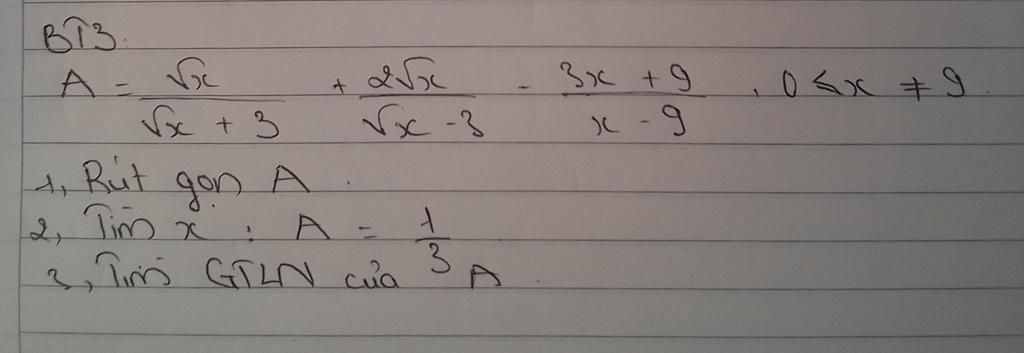 BT3.
A = √x / (√x + 3) + 2√x / (√x - 3) - (3x + 9) / (x - 9), 0 ≤ x ≠ 9.
1, Rút gọn A.
2, Tìm x : A = 1/3
3, Tìm GTLN của A.